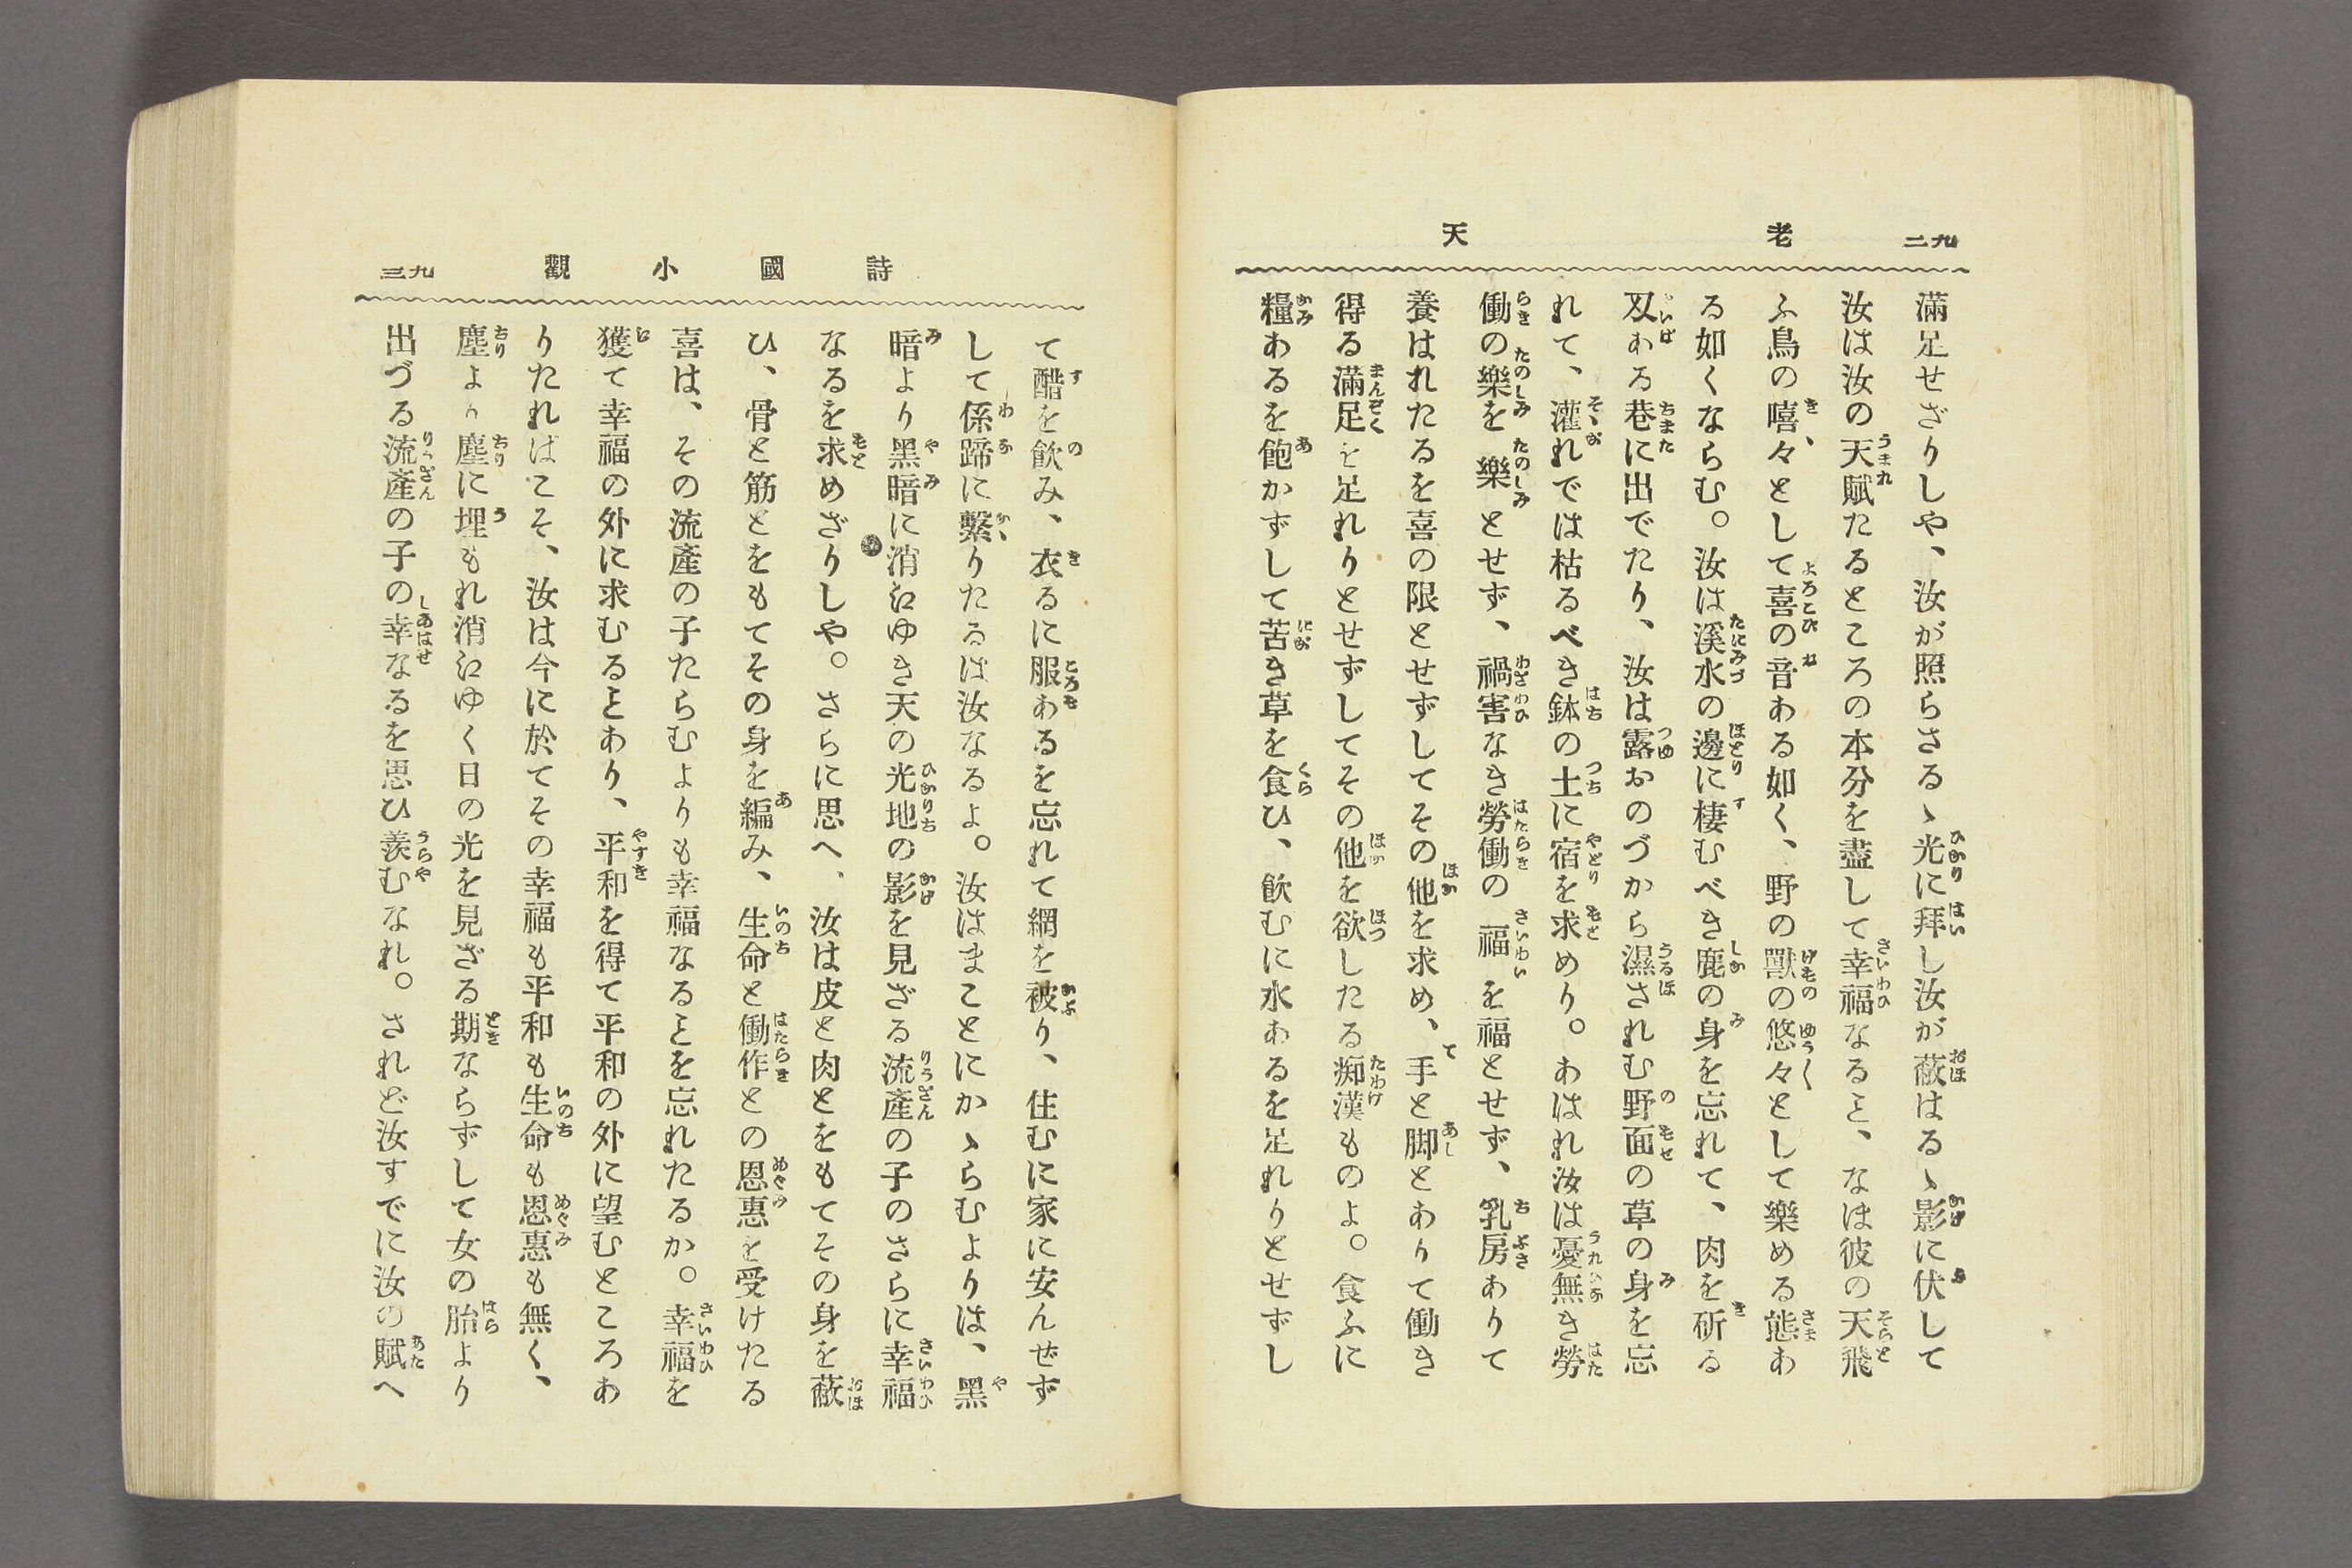 老天
九二
滿足せざりしや、汝が照らさるゝ光に拜し汝が蔽はるゝ影に伏して
汝は汝の天賦たるところの本分を盡して幸福なるを、なほ彼の天飛
ふ鳥の嘻々として喜の音ある如く、野の獸の悠々として樂める態あ
る如くならむ。汝は溪水の邊に棲むべき鹿の身を忘れて、肉を斫る
刄ある巷に出でたり、汝は露おのづから濕されむ野面の草の身を忘
れて、灌れでは枯るべき鉢の土に宿を求めり。あはれ汝は憂無き勞
働の樂を樂とせず、禍害なき勞働の福を福とせず、乳房ありて
養はれたるを喜の限とせずしてその他を求め、手と脚とありて働き
得る滿足を足れりとせずしてその他を欲したる痴漢ものよ。食ふに
糧あるを飽かずして苦き草を食ひ、飮むに水あるを足れりとせずし
詩國小觀
九三
て醋を飮み、衣るに服あるを忘れて網を被り、住むに家に安んぜず
して係蹄に繫りたるは汝なるよ。汝はまことにかゝらむよりは、黑
暗より黑暗に消えゆき天の光地の影を見ざる流產の子のさらに幸福
なるを求めざりしや。さらに思へ、汝は皮と肉とをもてその身を蔽
ひ、骨と筋とをもてその身を編み、生命と働作との恩惠を受けたる
喜は、その流產の子たらむよりも幸福なるとを忘れたるか。幸福を
獲て幸福の外に求むるとあり、平和を得て平和の外に望むところあ
りたればこそ、汝は今に於てその幸福も平和も生命も恩惠も無く、
塵より塵に埋もれ消えゆく日の光を見ざる期ならずして女の胎より
出づる流產の子の幸なるを思ひ羨むなれ。されど汝すでに汝の賦へ